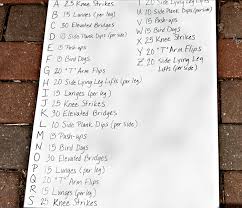 A 25 Knee Strikes
B 15 Lunges (per leg)
C 30 Elevated Bridges
D 10 Side Plank Dips (per side)
E 15 Push-ups
F 15 Bird Dogs
G 20 "T" Arm Flips
H 20 Side Lying Leg Lifts (per side)
I 15 Lunges (per leg)
J 25 Knee Strikes
K 30 Elevated Bridges
L 10 Side Plank Dips (per side)
M 15 Push-ups
N 15 Bird Dogs
O 30 Elevated Bridges
P 15 Lunges (per leg)
Q 20 "T" Arm Flips
R 15 Lunges (per leg)
S 25 Knee Strikes
20 Side Lying Leg Lifts
U 10 Side Plank Dips (per side)
V 15 Push-ups
W 15 Bird Dogs
X 25 Knee Strikes
Y 20 "T" Arm Flips
Z 20 Side Lying Leg Lifts (per side)